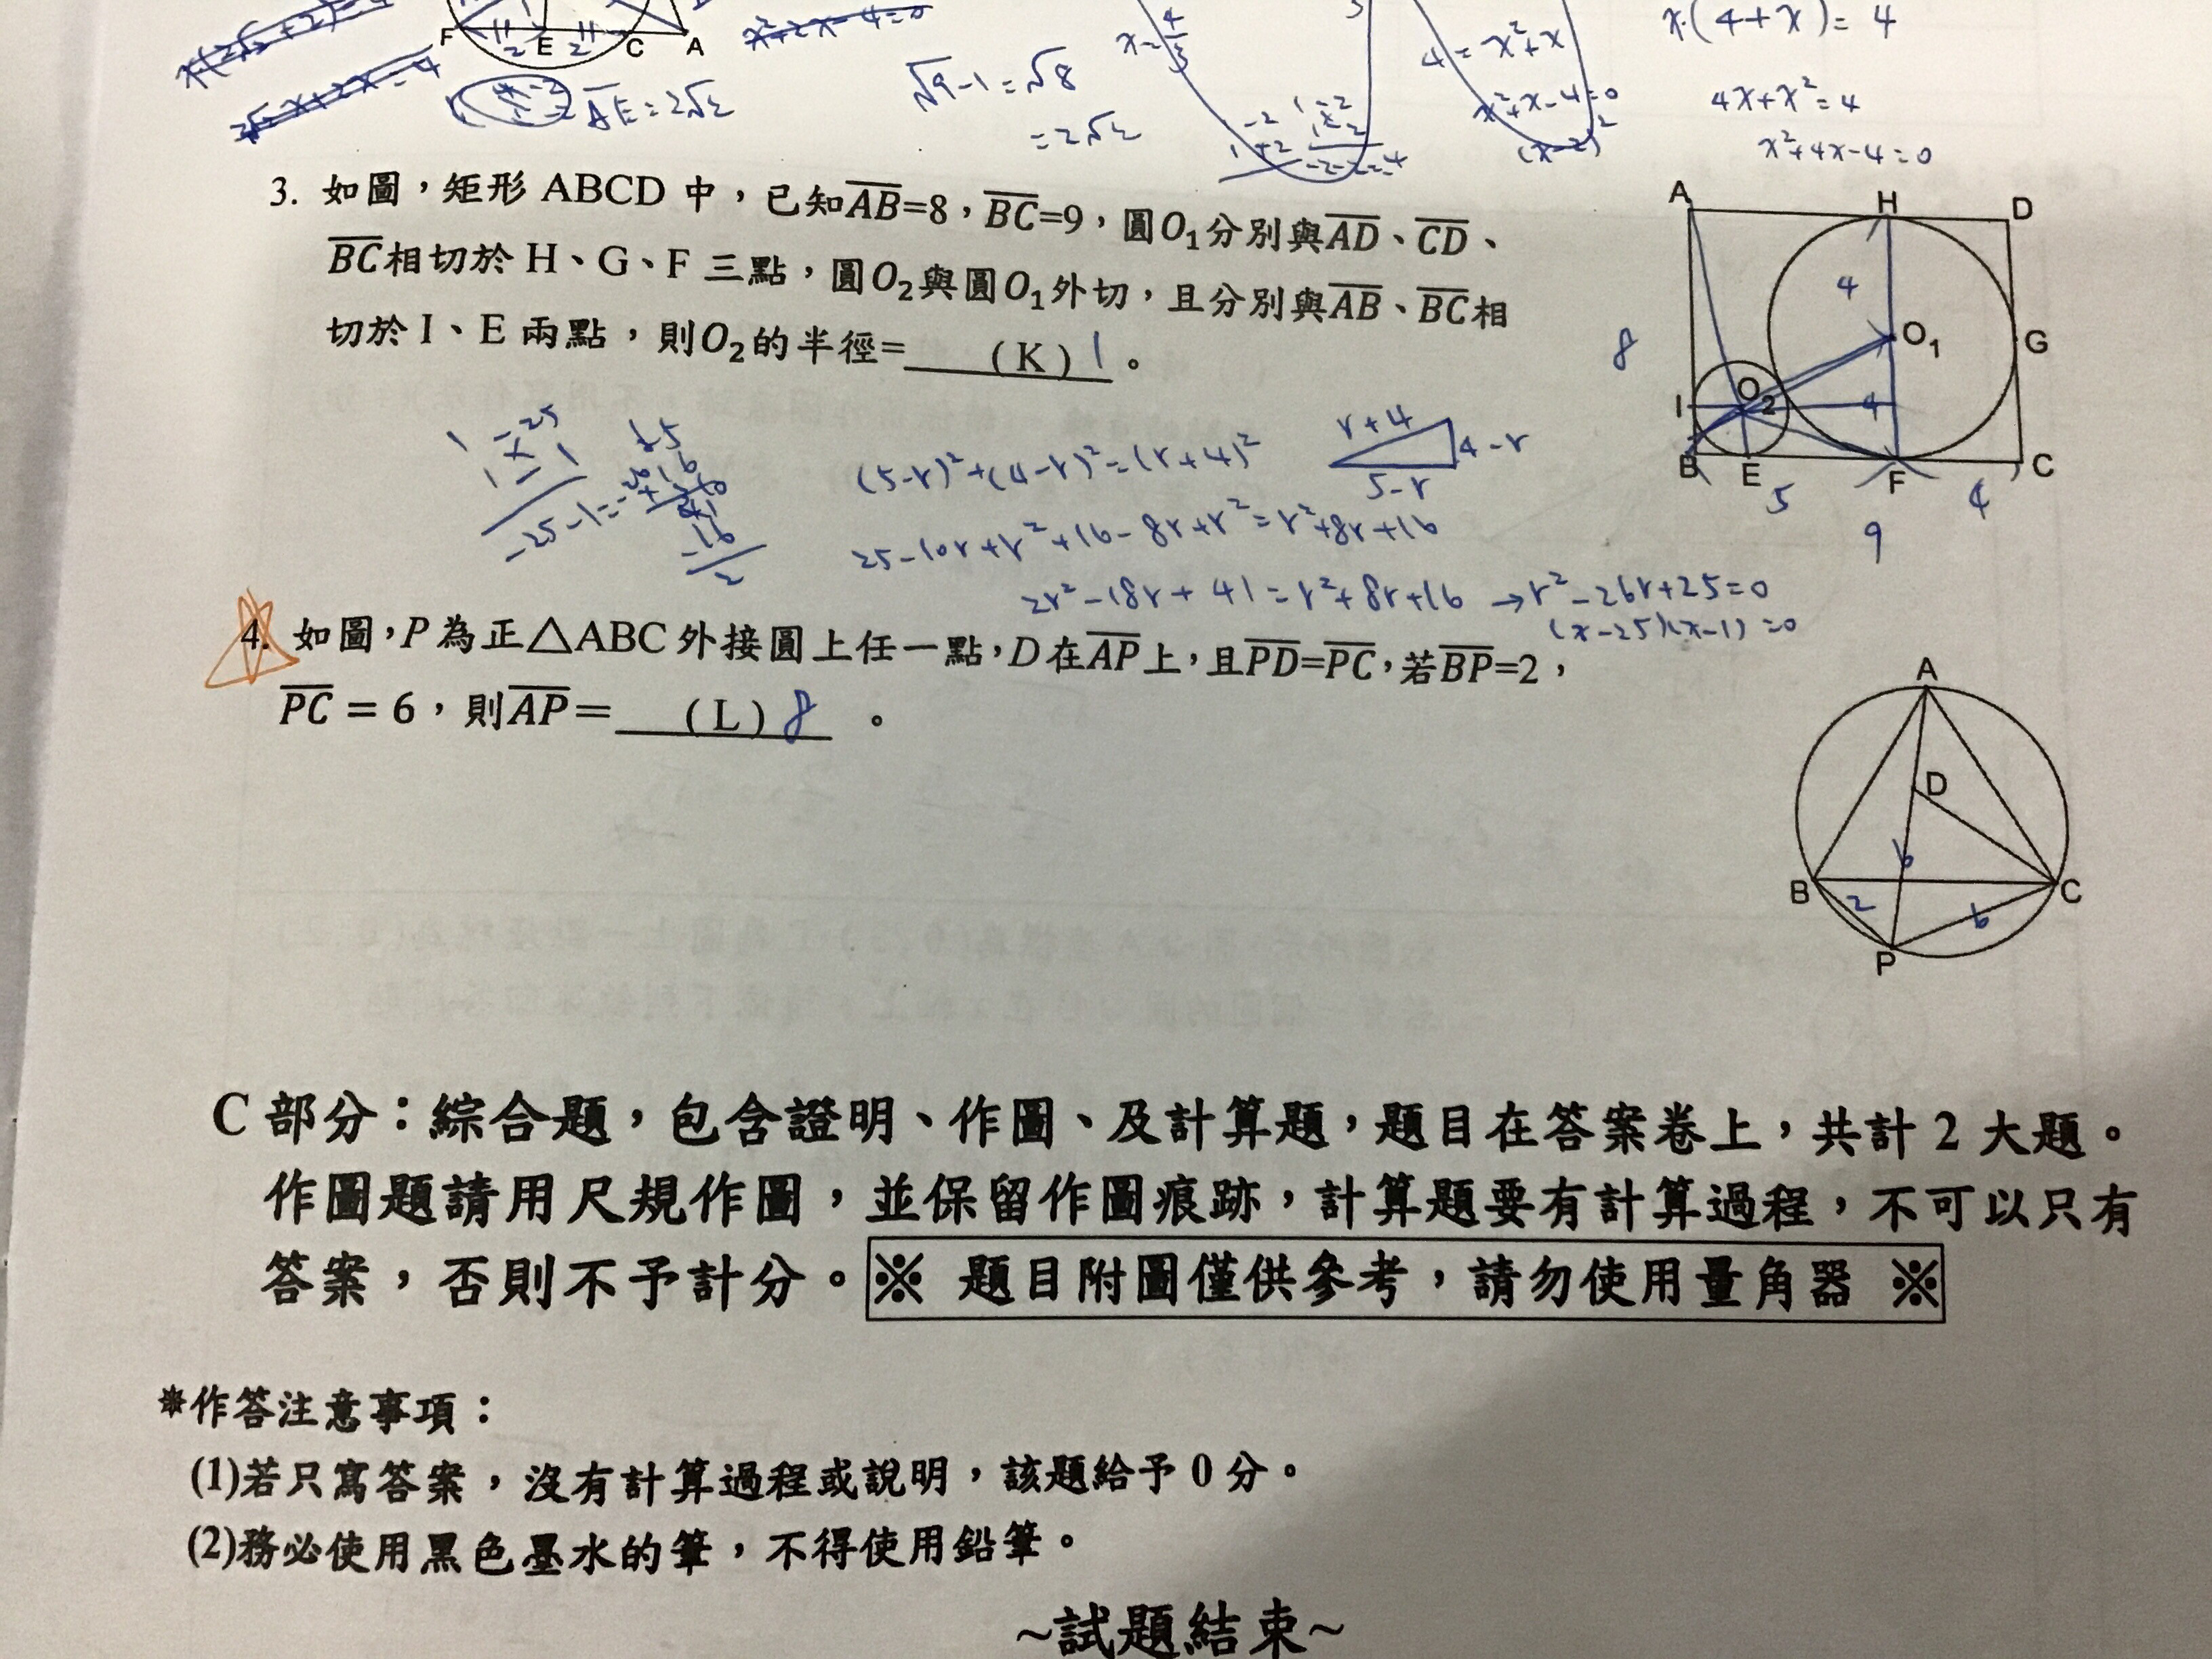 x·(4+x)=4
F 2 E 2 C A
x²+2x-4=0
x=4/3
4=x²+x
√9-1=√8
4x+x²=4
AE=2√2
=2√2
x²+x-4=0
x²+4x-4=0
3. 如圖，矩形 ABCD 中，已知AB=8，BC=9，圓O₁分別與AD、CD、
BC相切於 H、G、F 三點，圓O₂與圓O₁外切，且分別與AB、BC相
切於 I、E 兩點，則O₂的半徑=（K）1。
A H D
4
8 O₁ G
I O₂ 4
B E F C
5 4
9
r+4
4-r
5-r
(5-r)²+(4-r)²=(r+4)²
25-10r+r²+16-8r+r²=r²+8r+16
2r²-18r+41=r²+8r+16 →r²-26r+25=0
(x-25)(x-1)=0
4. 如圖，P 為正△ABC 外接圓上任一點，D 在AP上，且PD=PC，若BP=2，
PC = 6，則AP=（L）8。
A
D
6
B C
2 6
P
C 部分：綜合題，包含證明、作圖、及計算題，題目在答案卷上，共計 2 大題。
作圖題請用尺規作圖，並保留作圖痕跡，計算題要有計算過程，不可以只有
答案，否則不予計分。※ 題目附圖僅供參考，請勿使用量角器 ※
*作答注意事項：
(1)若只寫答案，沒有計算過程或說明，該題給予 0 分。
(2)務必使用黑色墨水的筆，不得使用鉛筆。
~試題結束~